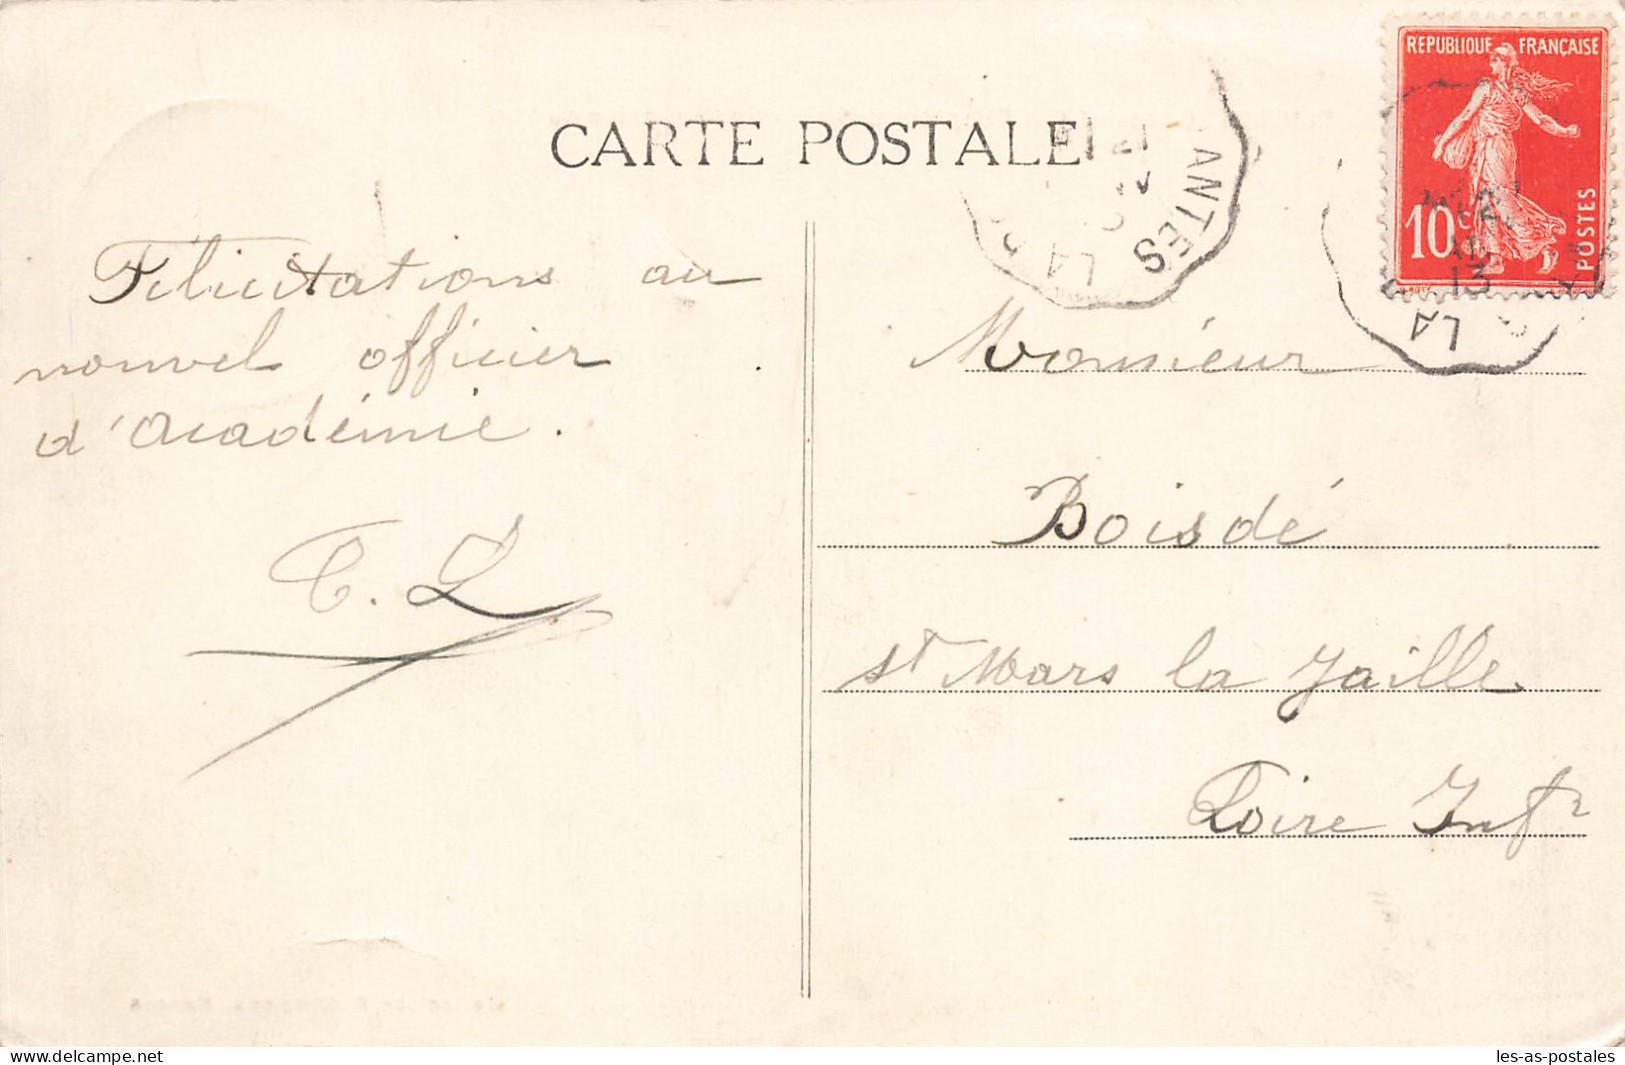 CARTE POSTALE
RÉPUBLIQUE FRANÇAISE
10c
POSTES
ANTES
LA
13
LA
Félicitations au
nouvel officier
d'Académie.
C. L
Monsieur
Boisdé
St Mars la Jaille
Loire Infre
delcampe.net
les-as-postales